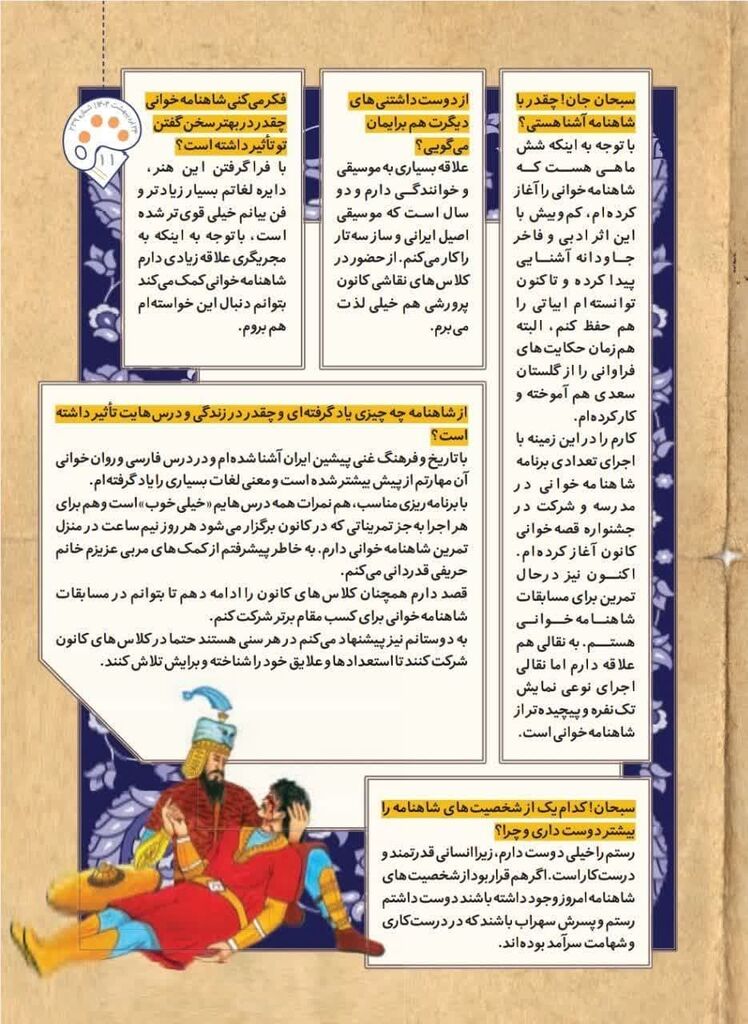 سبحان جان! چقدر با
شاهنامه آشنا هستی؟
با توجه به اینکه شش
ماهی هست که
شاهنامه‌خوانی را آغاز
کرده‌ام، کم‌وبیش با
این اثر ادبی و فاخر
جاودانه آشنایی
پیدا کرده و تاکنون
توانسته‌ام ابیاتی را
هم حفظ کنم، البته
هم‌زمان حکایت‌های
فراوانی را از گلستان
سعدی هم آموخته و
کار کرده‌ام.
کارم را در این زمینه با
اجرای تعدادی برنامه
شاهنامه خوانی در
مدرسه و شرکت در
جشنواره قصه‌خوانی
کانون آغاز کرده‌ام.
اکنون نیز درحال
تمرین برای مسابقات
شاهنامه خوانی
هستم. به نقالی هم
علاقه دارم اما نقالی
اجرای نوعی نمایش
تک‌نفره و پیچیده‌تر از
شاهنامه‌خوانی است.
از دوست داشتنی‌های
دیگرت هم برایمان
می‌گویی؟
علاقه بسیاری به موسیقی
و خوانندگی دارم و دو
سال است که موسیقی
اصیل ایرانی و ساز سه‌تار
را کار می‌کنم. از حضور در
کلاس‌های نقاشی کانون
پرورشی هم خیلی لذت
می‌برم.
فکر می‌کنی شاهنامه‌خوانی
چقدر در بهتر سخن گفتن
تو تأثیر داشته است؟
با فراگرفتن این هنر،
دایره لغاتم بسیار زیادتر و
فن بیانم خیلی قوی‌تر شده
است، با توجه به اینکه به
مجریگری علاقه زیادی دارم
شاهنامه‌خوانی کمک می‌کند
بتوانم دنبال این خواسته‌ام
هم بروم.
۱۱
از شاهنامه چه چیزی یاد گرفته‌ای و چقدر در زندگی و درس‌هایت تأثیر داشته
است؟
با تاریخ و فرهنگ غنی پیشین ایران آشنا شده‌ام و در درس فارسی و روان خوانی
آن مهارتم از پیش بیشتر شده است و معنی لغات بسیاری را یاد گرفته‌ام.
با برنامه‌ریزی مناسب، هم نمرات همه درس‌هایم «خیلی خوب» است و هم برای
هر اجرا به جز تمریناتی که در کانون برگزار می‌شود هر روز نیم ساعت در منزل
تمرین شاهنامه‌خوانی دارم. به خاطر پیشرفتم از کمک‌های مربی عزیزم خانم
حریفی قدردانی می‌کنم.
قصد دارم همچنان کلاس‌های کانون را ادامه دهم تا بتوانم در مسابقات
شاهنامه‌خوانی برای کسب مقام برتر شرکت کنم.
به دوستانم نیز پیشنهاد می‌کنم در هر سنی هستند حتما در کلاس‌های کانون
شرکت کنند تا استعدادها و علایق خود را شناخته و برایش تلاش کنند.
سبحان! کدام یک از شخصیت‌های شاهنامه را
بیشتر دوست داری و چرا؟
رستم را خیلی دوست دارم، زیرا انسانی قدرتمند و
درست‌کار است. اگر هم قرار بود از شخصیت‌های
شاهنامه امروز وجود داشته باشند دوست داشتم
رستم و پسرش سهراب باشند که در درست‌کاری
و شهامت سرآمد بوده‌اند.